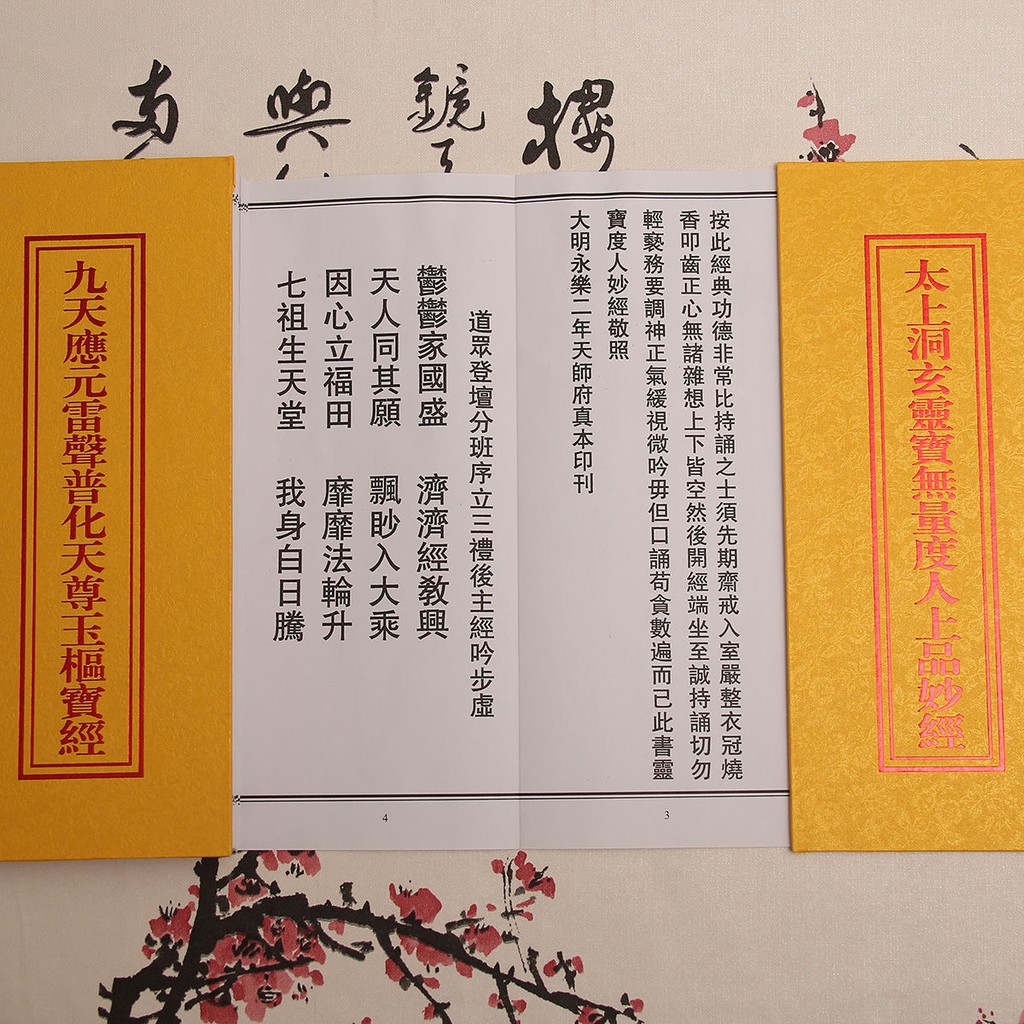 南 與 鏡 樓
太上洞玄靈寶無量度人上品妙經
按此經典功德非常比持誦之士須先期齋戒入室嚴整衣冠燒
香叩齒正心無諸雜想上下皆空然後開經端坐至誠持誦切勿
輕褻務要調神正氣緩視微吟毋但口誦苟貪數遍而已此書靈
寶度人妙經敬照
大明永樂二年天師府真本印刊
3
道眾登壇分班序立三禮後主經吟步虛
鬱鬱家國盛 濟濟經教興
天人同其願 飄眇入大乘
因心立福田 靡靡法輪升
七祖生天堂 我身白日騰
4
九天應元雷聲普化天尊玉樞寶經